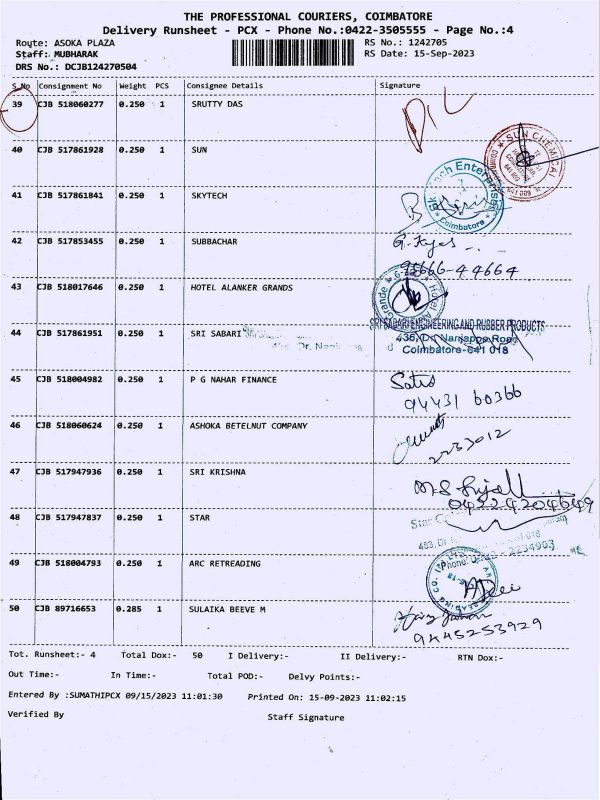 THE PROFESSIONAL COURIERS, COIMBATORE
Delivery Runsheet - PCX - Phone No.:0422-3505555 - Page No.:4
Route: ASOKA PLAZA RS No.: 1242705
Staff: MUBHARAK RS Date: 15-Sep-2023
DRS No.: DCJB124270504
S_No Consignment No Weight PCS Consignee Details Signature
39 CJB 518060277 0.250 1 SRUTTY DAS
40 CJB 517861928 0.250 1 SUN
SUN CHEMICAL
41 CJB 517861841 0.250 1 SKYTECH
Enterprises
Coimbatore
42 CJB 517853455 0.250 1 SUBBACHAR
95666-44664
43 CJB 518017646 0.250 1 HOTEL ALANKER GRANDS
SRI SABARI ENGINEERING AND RUBBER PRODUCTS
44 CJB 517861951 0.250 1 SRI SABARI
436, Dr. Nanjappa Road
Coimbatore-641 018
45 CJB 518004982 0.250 1 P G NAHAR FINANCE
94431 60366
46 CJB 518060624 0.250 1 ASHOKA BETELNUT COMPANY
2233012
47 CJB 517947936 0.250 1 SRI KRISHNA
04224204649
48 CJB 517947837 0.250 1 STAR
Star
2234903
49 CJB 518004793 0.250 1 ARC RETREADING
Phone:
50 CJB 89716653 0.285 1 SULAIKA BEEVE M
9445253929
Tot. Runsheet:- 4 Total Dox:- 50 I Delivery:- II Delivery:- RTN Dox:-
Out Time:- In Time:- Total POD:- Delvy Points:-
Entered By :SUMATHIPCX 09/15/2023 11:01:30 Printed On: 15-09-2023 11:02:15
Verified By Staff Signature